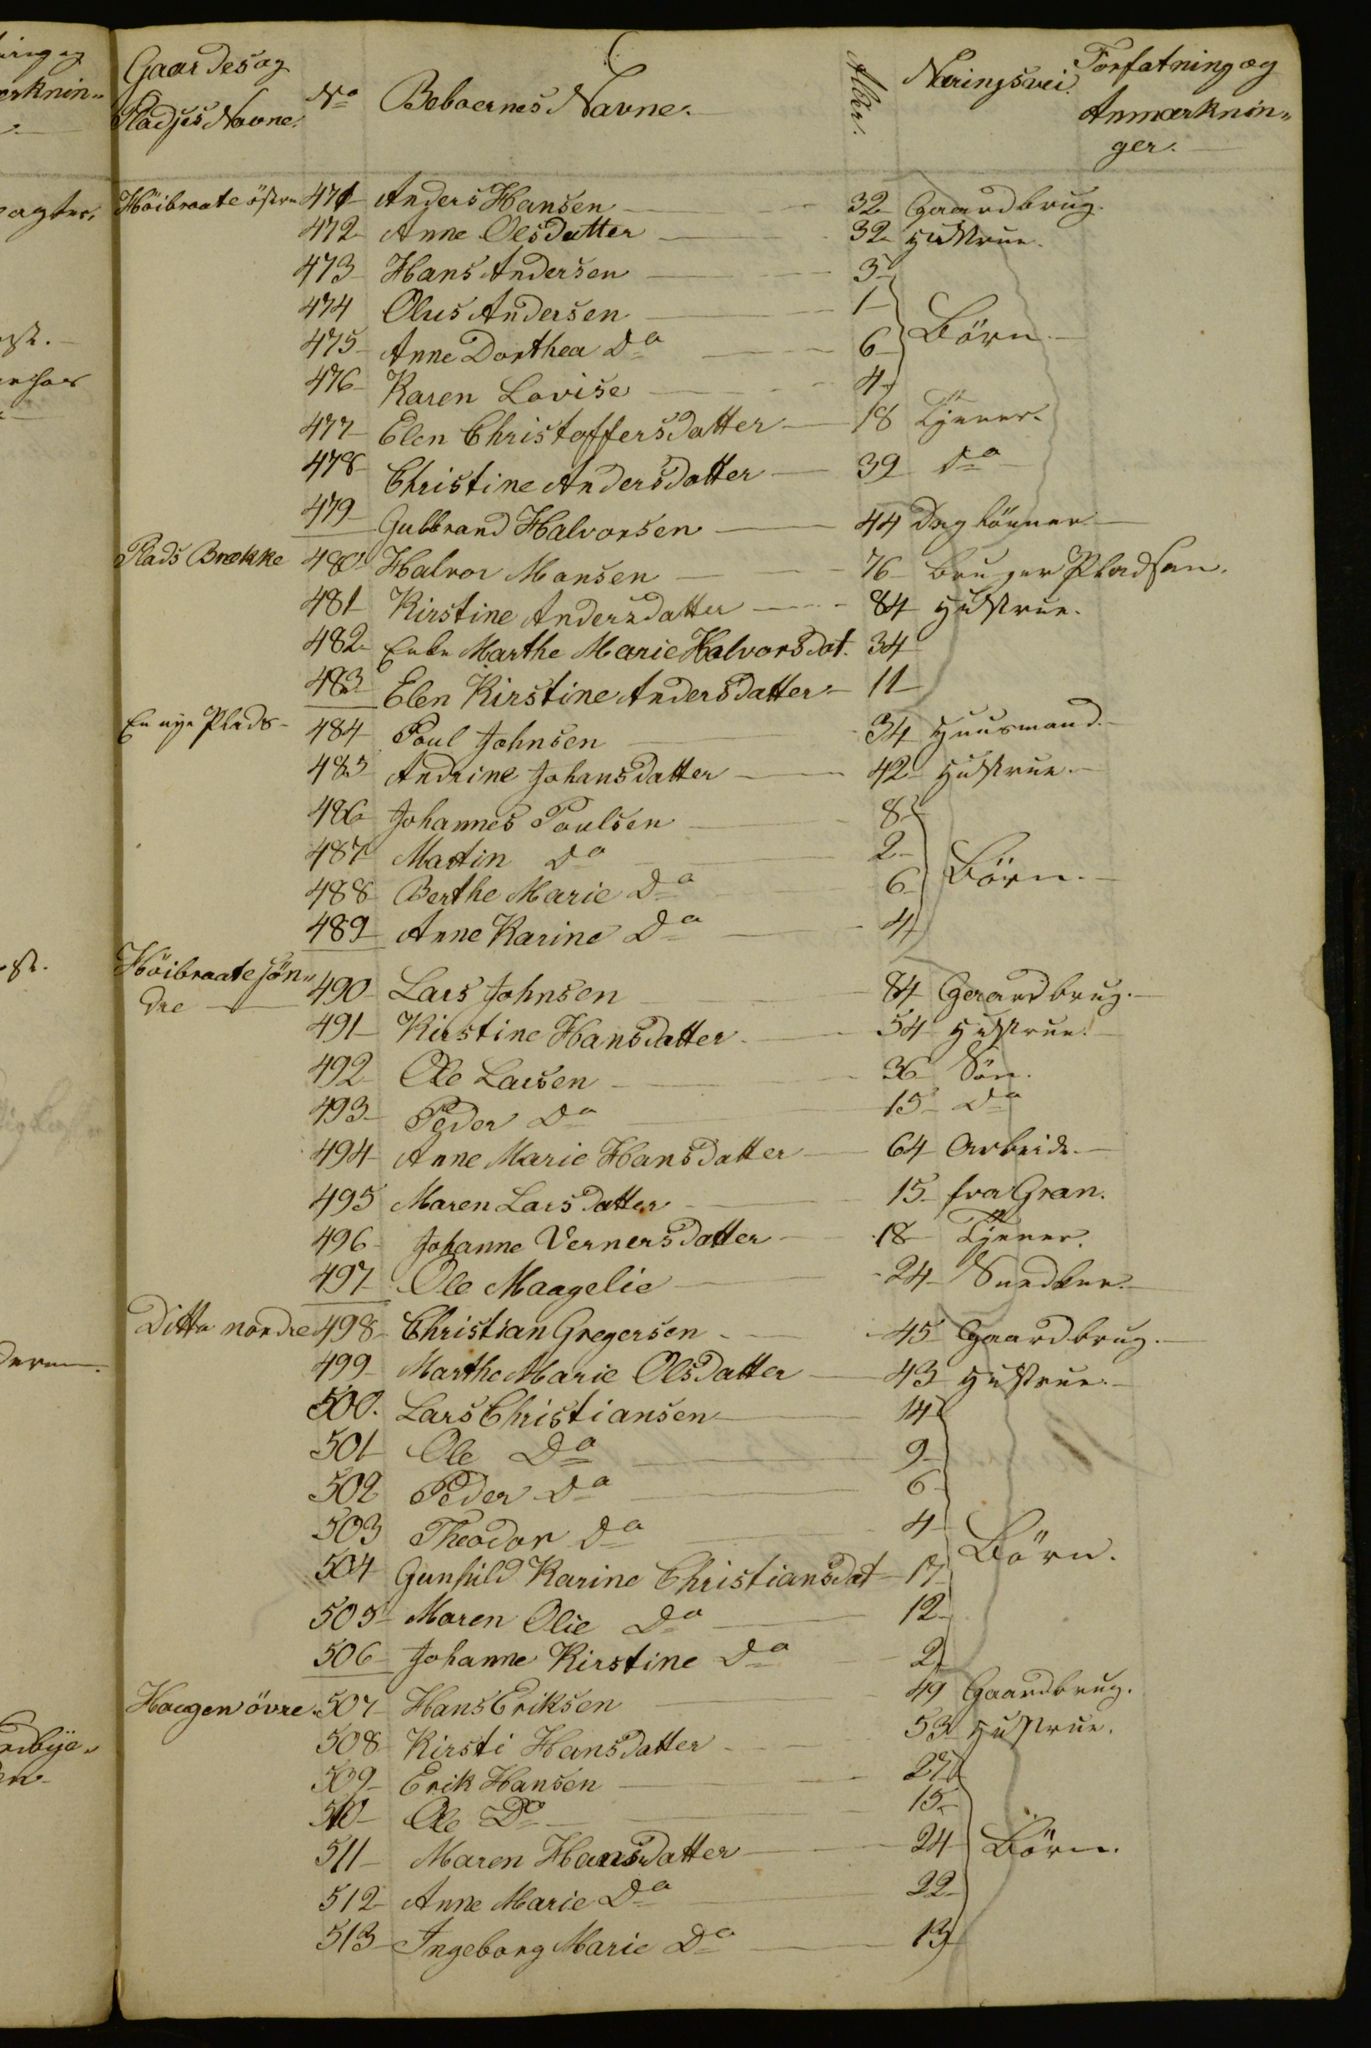 Gaardes og Pladses Navne. No Beboernes Navne. Alder. Næringsvei. Forfatning og Anmærkninger.
Höibraate östre 471 Anders Hansen 32 Gaardbrug.
472 Anne Olsdatter 32 Hustrue.
473 Hans Andersen 5
474 Olus Andersen 1 Börn
475 Anne Dorthea Do 6
476 Karen Lovise 4
477 Elen Christoffersdatter 18 Tjener
478 Christine Andersdatter 39 do
479 Gulbrand Halvorsen 44 Daglönner
Plads Brække 480 Halvor Monsen 76 bruger Pladsen.
481 Kirstine Andersdatter 84 Hustrue.
482 Enke Marthe Marie Halvorsdat. 34
483 Elen Kirstine Andersdatter 11
En nye Plads 484 Poul Johnsen 34 Huusmand.
485 Andrine Johansdatter 42 Hustrue.
486 Johannes Poulsen 8
487 Martin Do 2 Börn.
488 Berthe Marie Do 6
489 Anne Karine Do 4
Höibraate Sön„
dre 490 Lars Johnsen 84 Gaardbrug.
491 Kirstine Hansdatter 54 Hustrue.
492 Ole Larsen 36 Sön.
493 Peder Do 15 do
494 Anne Marie Hansdatter 64 Arbeide.
495 Maren Larsdatter 15 fra Gran.
496 Johanne Vernersdatter 18 Tjener.
497 Ole Maagelie 24 Snedker.
Ditto nordre 498 Christian Gregersen 45 Gaardbrug.
499 Marthe Marie Olsdatter 43 Hustrue.
500. Lars Christiansen 14
501 Ole Do 9
502 Peder do 6
503 Theodor do 4 Börn.
504 Gunhild Karine Christiansdat 17
505 Maren Olie Do 12
506 Johanne Kirstine Do 2
Haugen övre. 507 Hans Eriksen 49 Gaardbrug.
508 Kirsti Hansdatter 53 Hustrue.
509 Erik Hansen 27
510 Ole Do 15
511 Maren Hansdatter 24 Börn.
512 Anne Marie Do 22
513 Ingeborg Marie Do 13